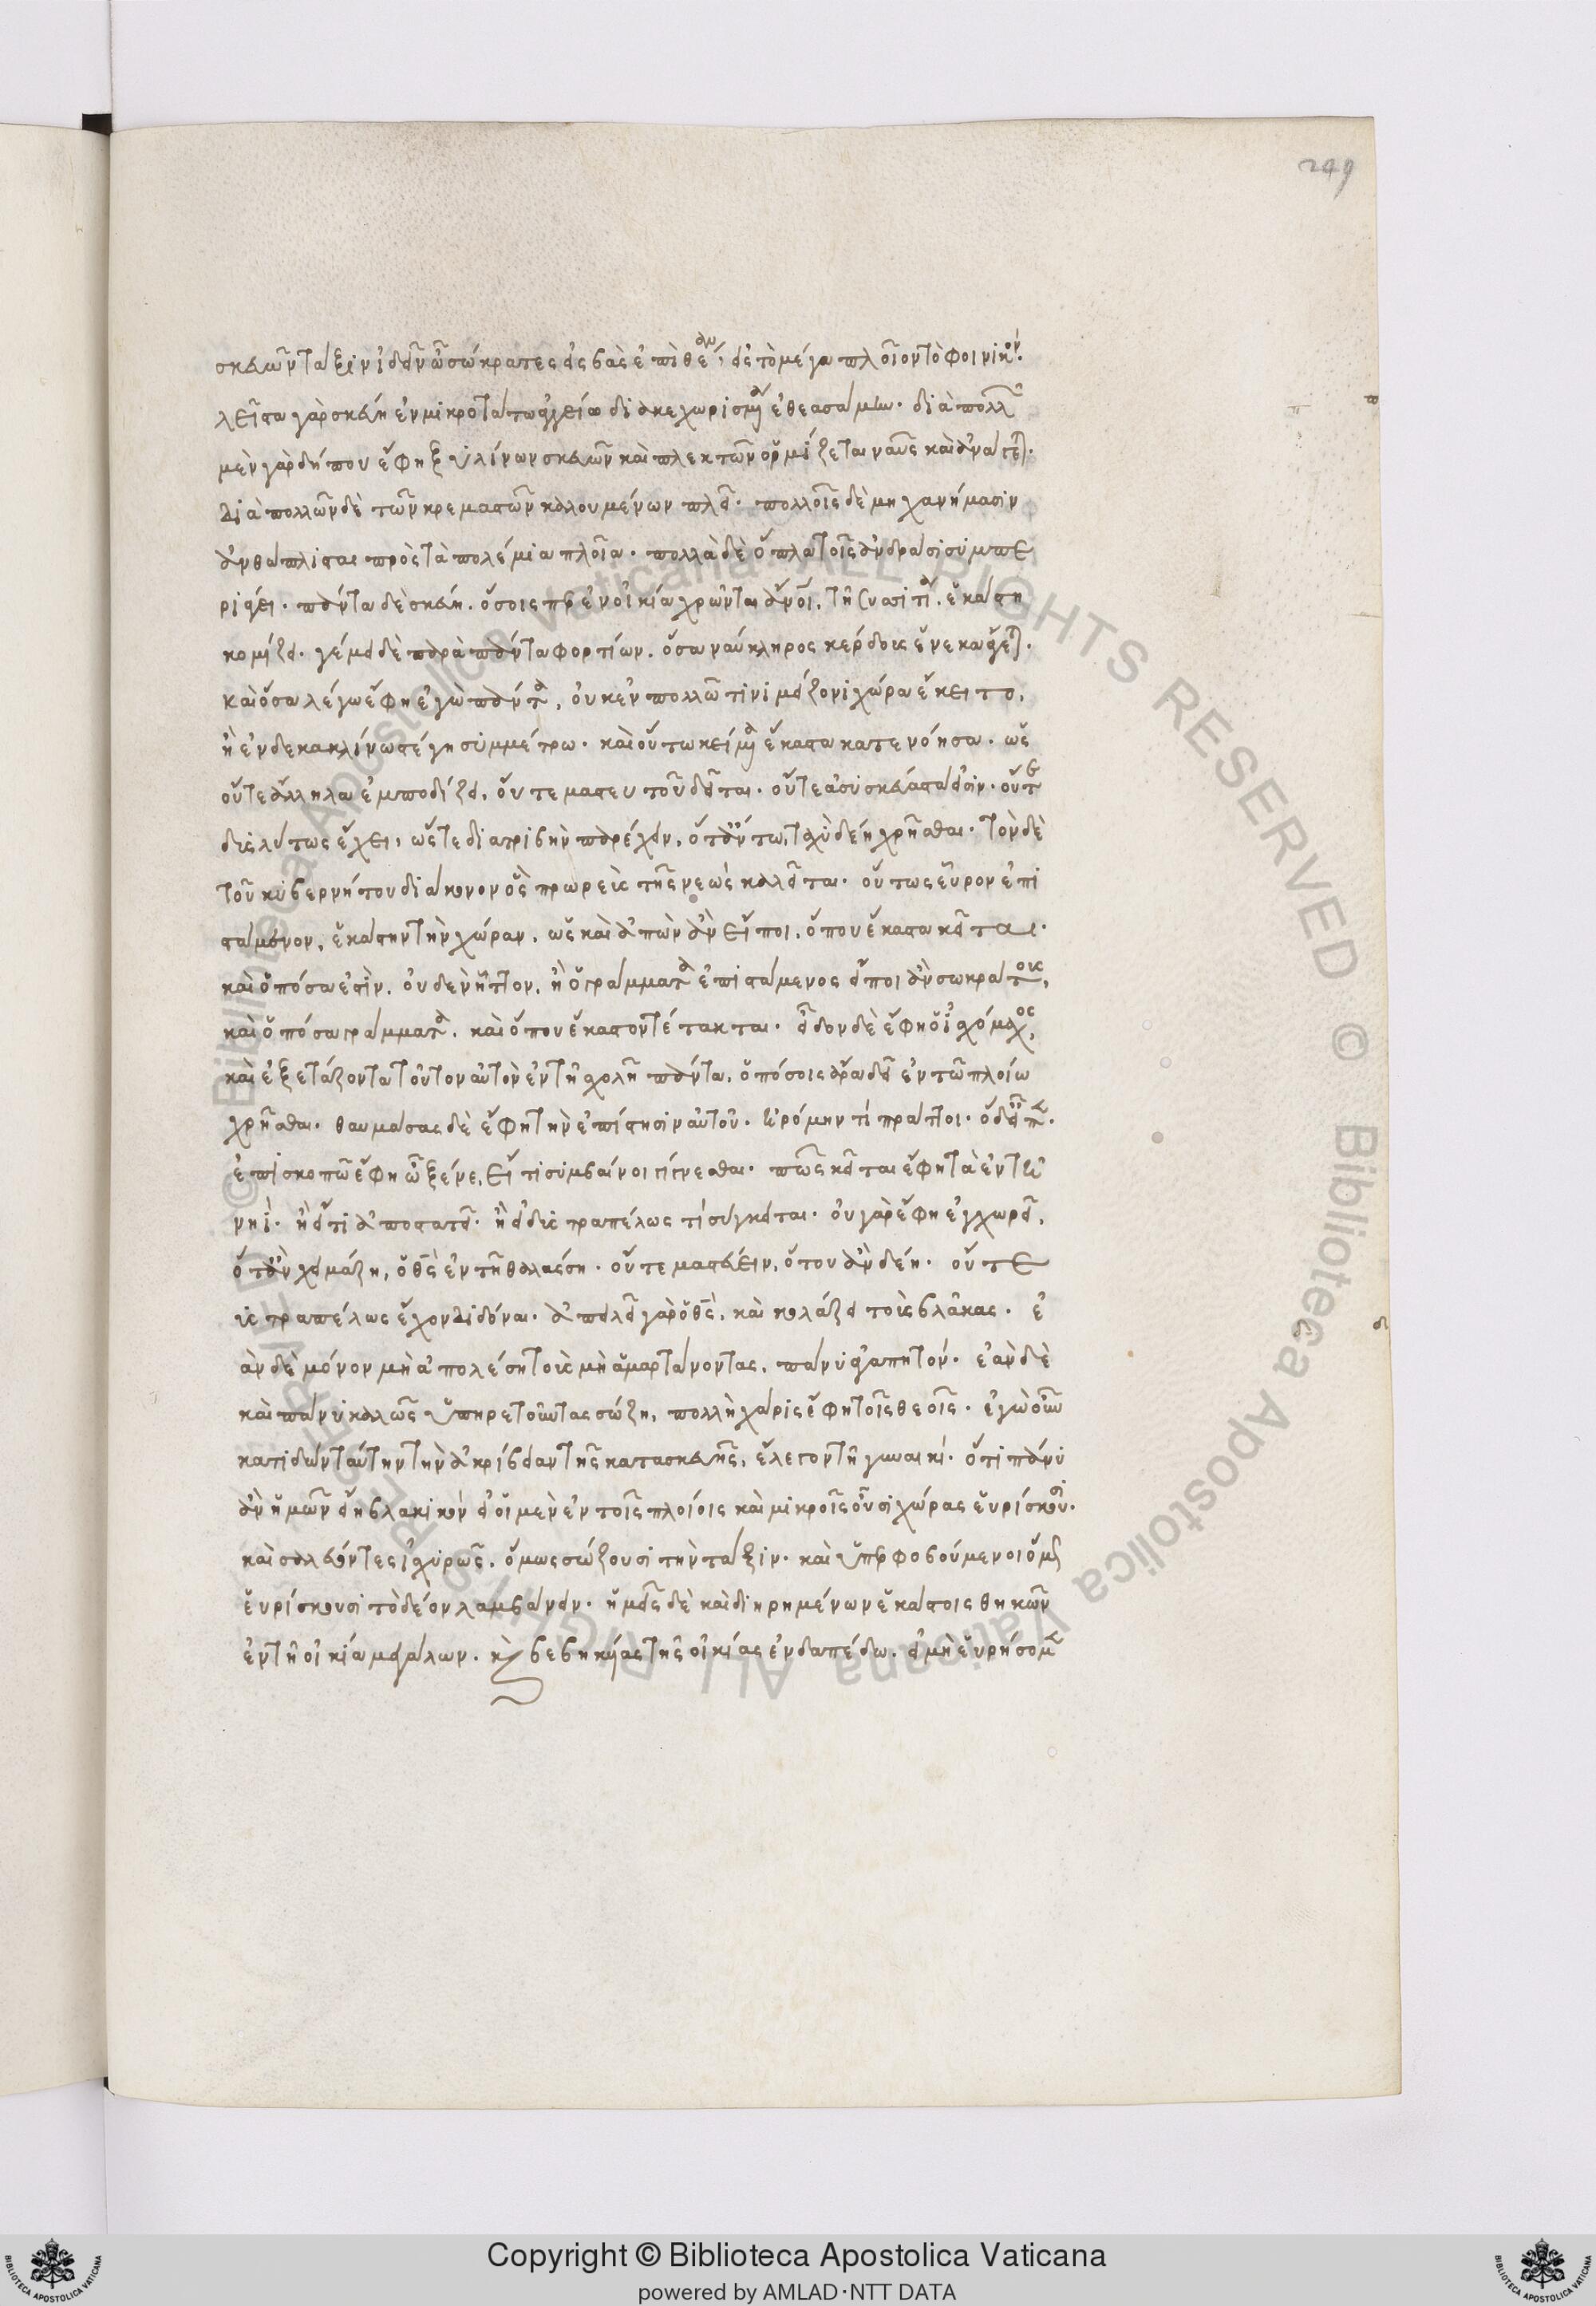 249
σκευῶν τάξιν ἰδεῖν ὦ σώκρατες εἰσβὰς ἐπὶ θέαν εἰς τὸ μέγα πλοῖον τὸ φοινικόν.
λεῖστα γὰρ σκεύη ἐν μικροτάτω ἀγγείω διακεχωρισμένα ἐθεασάμην. διὰ πολλῶν
μὲν γὰρ δήπου ἔφη ξυλίνων σκευῶν καὶ πλεκτῶν ὁρμίζεται ναῦς καὶ ἀνάγεται.
διὰ πολλῶν δὲ τῶν κρεμαστῶν καλουμένων πλεῖ. πολλοῖς δὲ μηχανήμασιν
ἀνθώπλισται πρὸς τὰ πολέμια πλοῖα. πολλὰ δὲ ὅπλα τοῖς ἀνδράσι συμπε
ριάγει. πάντα δὲ σκεύη. ὅσοις περ ἐν οἰκία χρῶνται ἄνθρωποι. τῆ συσσιτία. ἑκάστη
κομίζει. γέμει δὲ παρὰ πάντα φορτίων. ὅσα ναύκληρος κέρδους ἕνεκα ἄγεται.
καὶ ὅσα λέγω ἔφη ἐγὼ πάντα, οὐκ ἐν πολλῶ τινι μείζονι χώρα ἔκειτο,
ἢ ἐν δεκακλίνω στέγη συμμέτρω. καὶ οὕτω κείμενα ἕκαστα κατενόησα. ὡς
οὔτε ἄλληλα ἐμποδίζει, οὔτε μαστευτοῦ δεῖται. οὔτε ἀσυσκεύαστά ἐστιν. οὔτε
δυσλύτως ἔχει, ὥστε διατριβὴν παρέχειν, ὅταν τω ταχὺ δέη χρῆσθαι. τὸν δὲ
τοῦ κυβερνήτου διάκονον ὃς πρωρεὺς τῆς νεώς καλεῖται. οὕτως εὗρον ἐπι
στάμενον, ἑκάστην τὴν χώραν. ὡς καὶ ἀπὼν ἂν εἴποι, ὅπου ἕκαστα κεῖται.
καὶ ὁπόσα ἐστὶν. οὐδὲν ἧττον. ἢ ὁ γράμματα ἐπιστάμενος εἴποι ἂν σωκράτους,
καὶ ὁπόσα γράμματα. καὶ ὅπου ἕκαστον τέτακται. εἶδον δὲ ἔφη ὁ ἰσχόμαχος,
καὶ ἐξετάζοντα τοῦτον αὐτὸν ἐν τῆ σχολῆ πάντα. ὁπόσοις ἄρα δεῖ ἐν τῶ πλοίω
χρῆσθαι. θαυμάσας δὲ ἔφη τὴν ἐπίσκησιν αὐτοῦ. ἠρόμην τί πράττοι. ὁ δ' εἶπεν.
ἐπισκοπῶ ἔφη ὦ ξένε, εἴ τι συμβαίνοι γίγνεσθαι. πῶς κεῖται ἔφη τὰ ἐν τῆ
νηὶ. ἢ εἴ τι ἀποστατεῖ. ἢ εἰ δυστραπέλως τί σύγκειται. οὐ γὰρ ἔφη ἐγχωρεῖ,
ὅταν χειμάζη, ὁ θεὸς ἐν τῆ θαλάσση. οὔτε μαστεύειν, ὅτου ἂν δέη. οὔτε
υστραπέλως ἔχον διδόναι. ἀπειλεῖ γὰρ ὁ θεὸς, καὶ κολάζει τοὺς βλᾶκας. ἐ
ὰν δὲ μόνον μὴ ἀπολέση τοὺς μὴ ἁμαρτάνοντας, πάνυ ἀγαπητόν. ἐὰν δὲ
καὶ πάνυ καλῶς ὑπηρετοῦντας σώζη, πολλὴ χάρις ἔφη τοῖς θεοῖς. ἐγὼ οὖν
κατιδὼν ταύτην τὴν ἀκρίβειαν τῆς κατασκευῆς, ἔλεγον τῆ γυναικί. ὅτι πάνυ
ἂν ἡμῶν εἴη βλακικόν εἰ οἱ μὲν ἐν τοῖς πλοίοις καὶ μικροῖς οὖσι χώρας εὑρίσκουσι.
καὶ σαλεύοντες ἰσχυρῶς. ὅμως σώζουσι τὴν τάξιν. καὶ ὑπερφοβούμενοι ὅμως
εὑρίσκουσι τὸ δέον λαμβάνειν. ἡμεῖς δὲ καὶ διηρημένων ἑκάστοις θηκῶν
ἐν τῆ οἰκία μεγάλων. καὶ βεβηκυίας τῆς οἰκίας ἐν δαπέδω. εἰ μὴ εὑρήσομεν